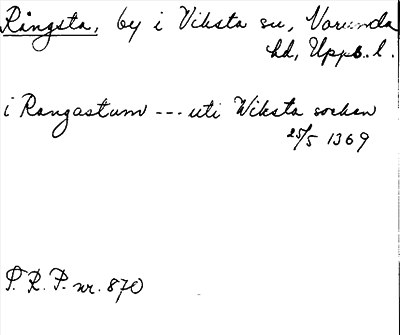 Rångsta, by i Viksta sn, Norunda
hd, Uppb. l.
i Rangastum --- uti Wiksta sochen
25/5 1369
P. R. P. nr. 870